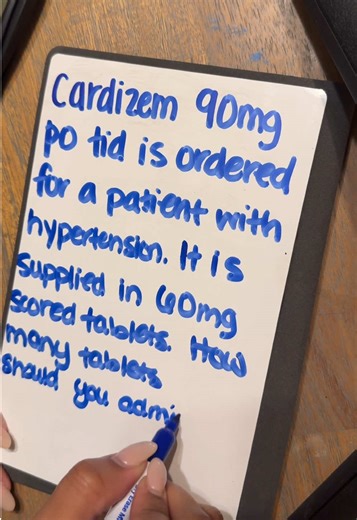 Cardizem 90mg
po tid is ordered
for a patient with
hypertension. It is
supplied in 60mg
scored tablets. How
many tablets
should you admi